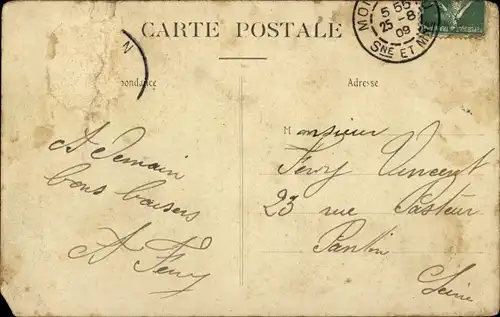 CARTE POSTALE
MO
5 55
25 - 8
09
Sne ET M
N
ondance
Adresse
A Demain
bons baisers
A Ferry
Monsieur
Ferry Vincent
23 rue Pasteur
Pantin
Seine